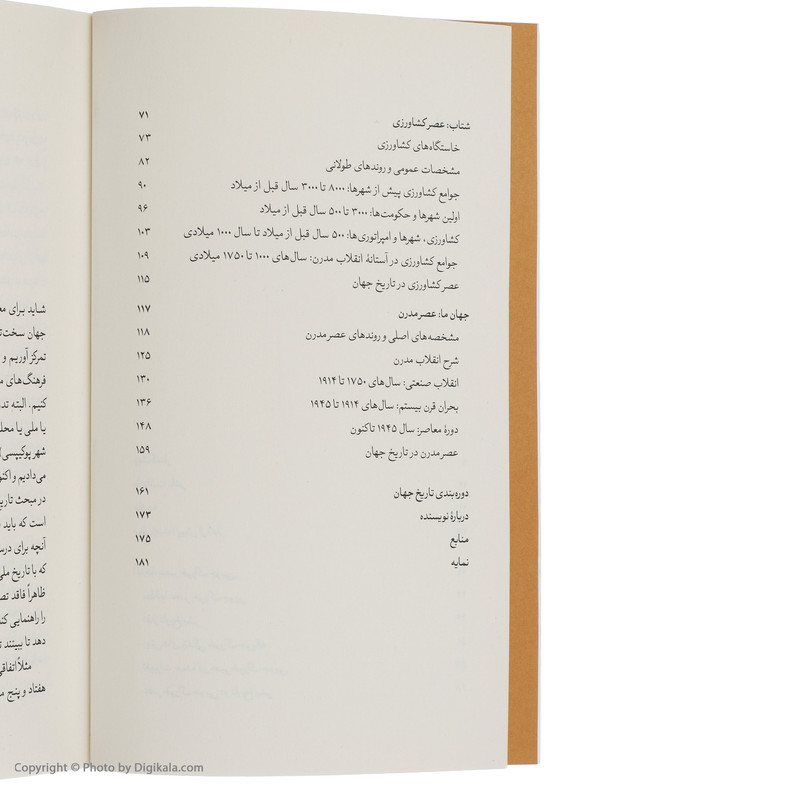 شتاب: عصر کشاورزی ۷۱
خاستگاه‌های کشاورزی ۷۳
مشخصات عمومی و روندهای طولانی ۸۲
جوامع کشاورزی پیش از شهرها: ۸۰۰۰ تا ۳۰۰۰ سال قبل از میلاد ۹۰
اولین شهرها و حکومت‌ها: ۳۰۰۰ تا ۵۰۰ سال قبل از میلاد ۹۶
کشاورزی، شهرها و امپراتوری‌ها: ۵۰۰ سال قبل از میلاد تا سال ۱۰۰۰ میلادی ۱۰۳
جوامع کشاورزی در آستانهٔ انقلاب مدرن: سال‌های ۱۰۰۰ تا ۱۷۵۰ میلادی ۱۰۹
عصر کشاورزی در تاریخ جهان ۱۱۵
جهان ما: عصر مدرن ۱۱۷
مشخصه‌های اصلی و روندهای عصر مدرن ۱۱۸
شرح انقلاب مدرن ۱۲۵
انقلاب صنعتی: سال‌های ۱۷۵۰ تا ۱۹۱۴ ۱۳۰
بحران قرن بیستم: سال‌های ۱۹۱۴ تا ۱۹۴۵ ۱۳۶
دورهٔ معاصر: سال ۱۹۴۵ تاکنون ۱۴۸
عصر مدرن در تاریخ جهان ۱۵۹
دوره‌بندی تاریخ جهان ۱۶۱
دربارهٔ نویسنده ۱۷۳
منابع ۱۷۵
نمایه ۱۸۱
شاید برای
جهان
تمرکز آوریم و
فرهنگ‌های
کنیم. البته
یا ملی یا
شهر پوکیپسی
می‌دادیم و
در مبحث
است که باید
آنچه برای
که با تاریخ
ظاهراً فاقد
را راهنمایی
دهد تا ببینند
مثلاً
هفتاد و پنج
Copyright © Photo by Digikala.com